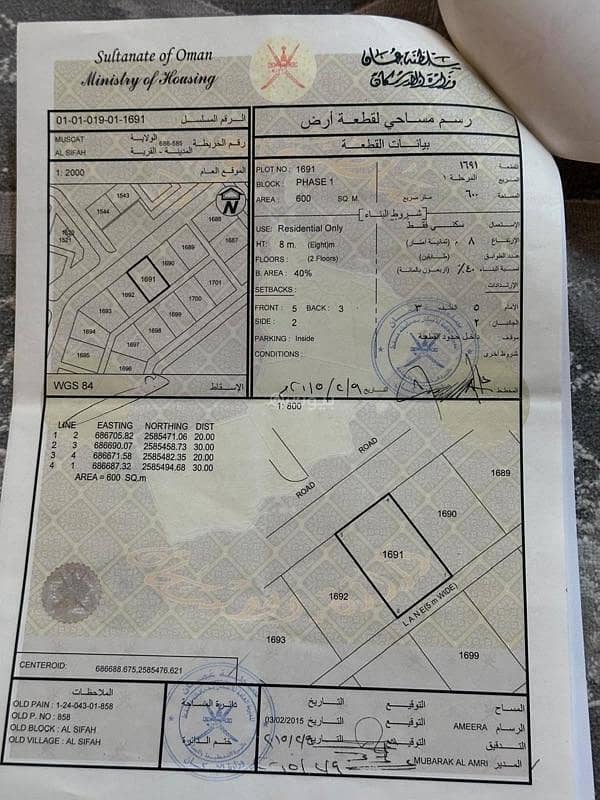 Sultanate of Oman
Ministry of Housing
سلطنة عمان
وزارة الإسكان
01-01-019-01-1691 الرقم المسلسل
MUSCAT الولاية
AL SIFAH المدينة - القرية
686-585 رقم الخريطة
1: 2000 الموقع العام
1544
1543
1521
N
1688
1687
1689
1690
1691
1692
1701
1700
1699
1694
1693
1698
1697
1695
1696
WGS 84 الإسقاط
رسم مساحي لقطعة أرض
بيانات القطعة
PLOT NO : 1691
القطعة ١٦٩١
BLOCK : PHASE 1
المربع المرحلة ١
AREA : 600 SQ. M.
المساحة ٦٠٠ متر مربع
شروط البناء
USE: Residential Only
الإستعمال سكني فقط
HT: 8 m. (Eight)m
الإرتفاع ٨ م (ثمانية أمتار)
FLOORS : (2 Floors)
عدد الطوابق (طابقين)
B. AREA : 40%
نسبة البناء ٤٠٪ (اربعون بالمائة)
SETBACKS :
الإرتدادات
FRONT : 5 BACK : 3
الأمام ٥ الخلف ٣
SIDE : 2
الجانبان ٢
PARKING : Inside
موقف داخل حدود القطعة
CONDITIONS :
شروط أخرى
المخطط
التاريخ
1: 800
LINE EASTING NORTHING DIST
1 2 686705.82 2585471.06 20.00
2 3 686690.07 2585458.73 30.00
3 4 686671.58 2585482.35 20.00
4 1 686687.32 2585494.68 30.00
AREA = 600 SQ.m
ROAD
ROAD
1689
1690
1691
1692
1693
1699
LANE(5.m WIDE)
CENTEROID: 686688.675,2585476.621
الملاحظات
OLD PAIN : 1-24-043-01-858
OLD P. NO : 858
OLD BLOCK : AL SIFAH
OLD VILLAGE : AL SIFAH
دائرة المساحة
ختم الدائرة
المساح التوقيع التاريخ
الرسام AMEERA التوقيع التاريخ 03/02/2015
التدقيق التوقيع التاريخ
المدير MUBARAK AL AMRI التوقيع التاريخ